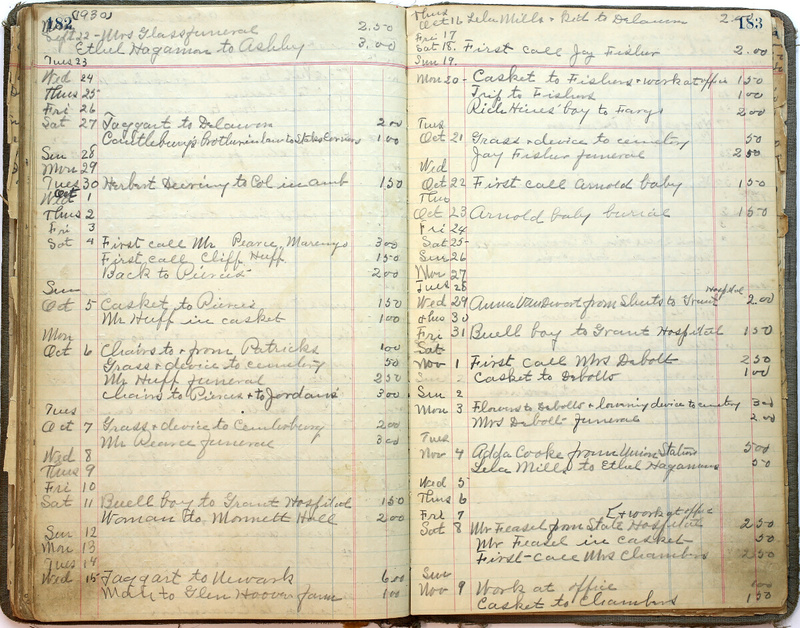 182 (1930)
Sept 22 - Mrs Glass funeral 2.50
Ethel Hagaman to Ashley 3.00
Tues 23
Wed 24
Thus 25
Fri 26
Sat 27 Taggart to Delaware 200
Castleberry's brother in law to States Corners 100
Sun 28
Mon 29
Tues 30 Herbert Deering to Col in amb 150
Wed Oct 1
Thus 2
Fri 3
Sat 4 First call Mr Pearce, Marengo 300
First call Cliff Huff 150
Back to Pierces 200
Sun
Oct 5 Casket to Pierces 150
Mr Huff in casket 100
Mon
Oct 6 Chairs to & from Patricks 100
Grass & device to cemetery 50
Mr Huff funeral 250
Chairs to Pierces & to Jordans 300
Tues
Oct 7 Grass & device to 200
Mr Pearce funeral 300
Wed 8
Thus 9
Fri 10
Sat 11 Buell boy to Grant Hospital 150
Woman to Monnett Hall 200
Sun 12
Mon 13
Tues 14
Wed 15 Taggart to Newark 600
to Glen Hoover farm 100
183
Thus
Oct 16 Lela Mills & Rich to Delaware
Fri 17
Sat 18. First call Jay Fisher 2.00
Sun 19.
Mon 20 - Casket to Fishers & work at office 150
Trip to Fishers 100
Rich Hines' boy to 200
Tues
Oct 21 Grass & device to cemetery 50
Jay Fisher funeral 250
Wed
Oct 22 First call Arnold baby 150
Thus
Oct 23 Arnold baby burial 150
Fri 24
Sat 25
Sun 26
Mon 27
Tues 28
Wed 29 Anna Vandervort from Shuts to Grant Hospital 2.00
Thus 30
Fri 31 Buell boy to Grant Hospital 150
Sat
Nov 1 First call Mrs Debolt 250
Casket to Debolts 100
Sun 2
Mon 3 Flowers to Debolts & lowering device to cemetery 300
Mrs Debolt funeral 200
Tues
Nov 4 Adda Cooke from Union Station 500
Lela Mills to Ethel Hagamans 50
Wed 5
Thus 6
Fri 7 & work at office
Sat 8 Mr Feasel from State Hospital 250
Mr Feasel in casket 50
First call Mrs Chambers 250
Sun
Nov 9 Work at office 100
Casket to Chambers 150